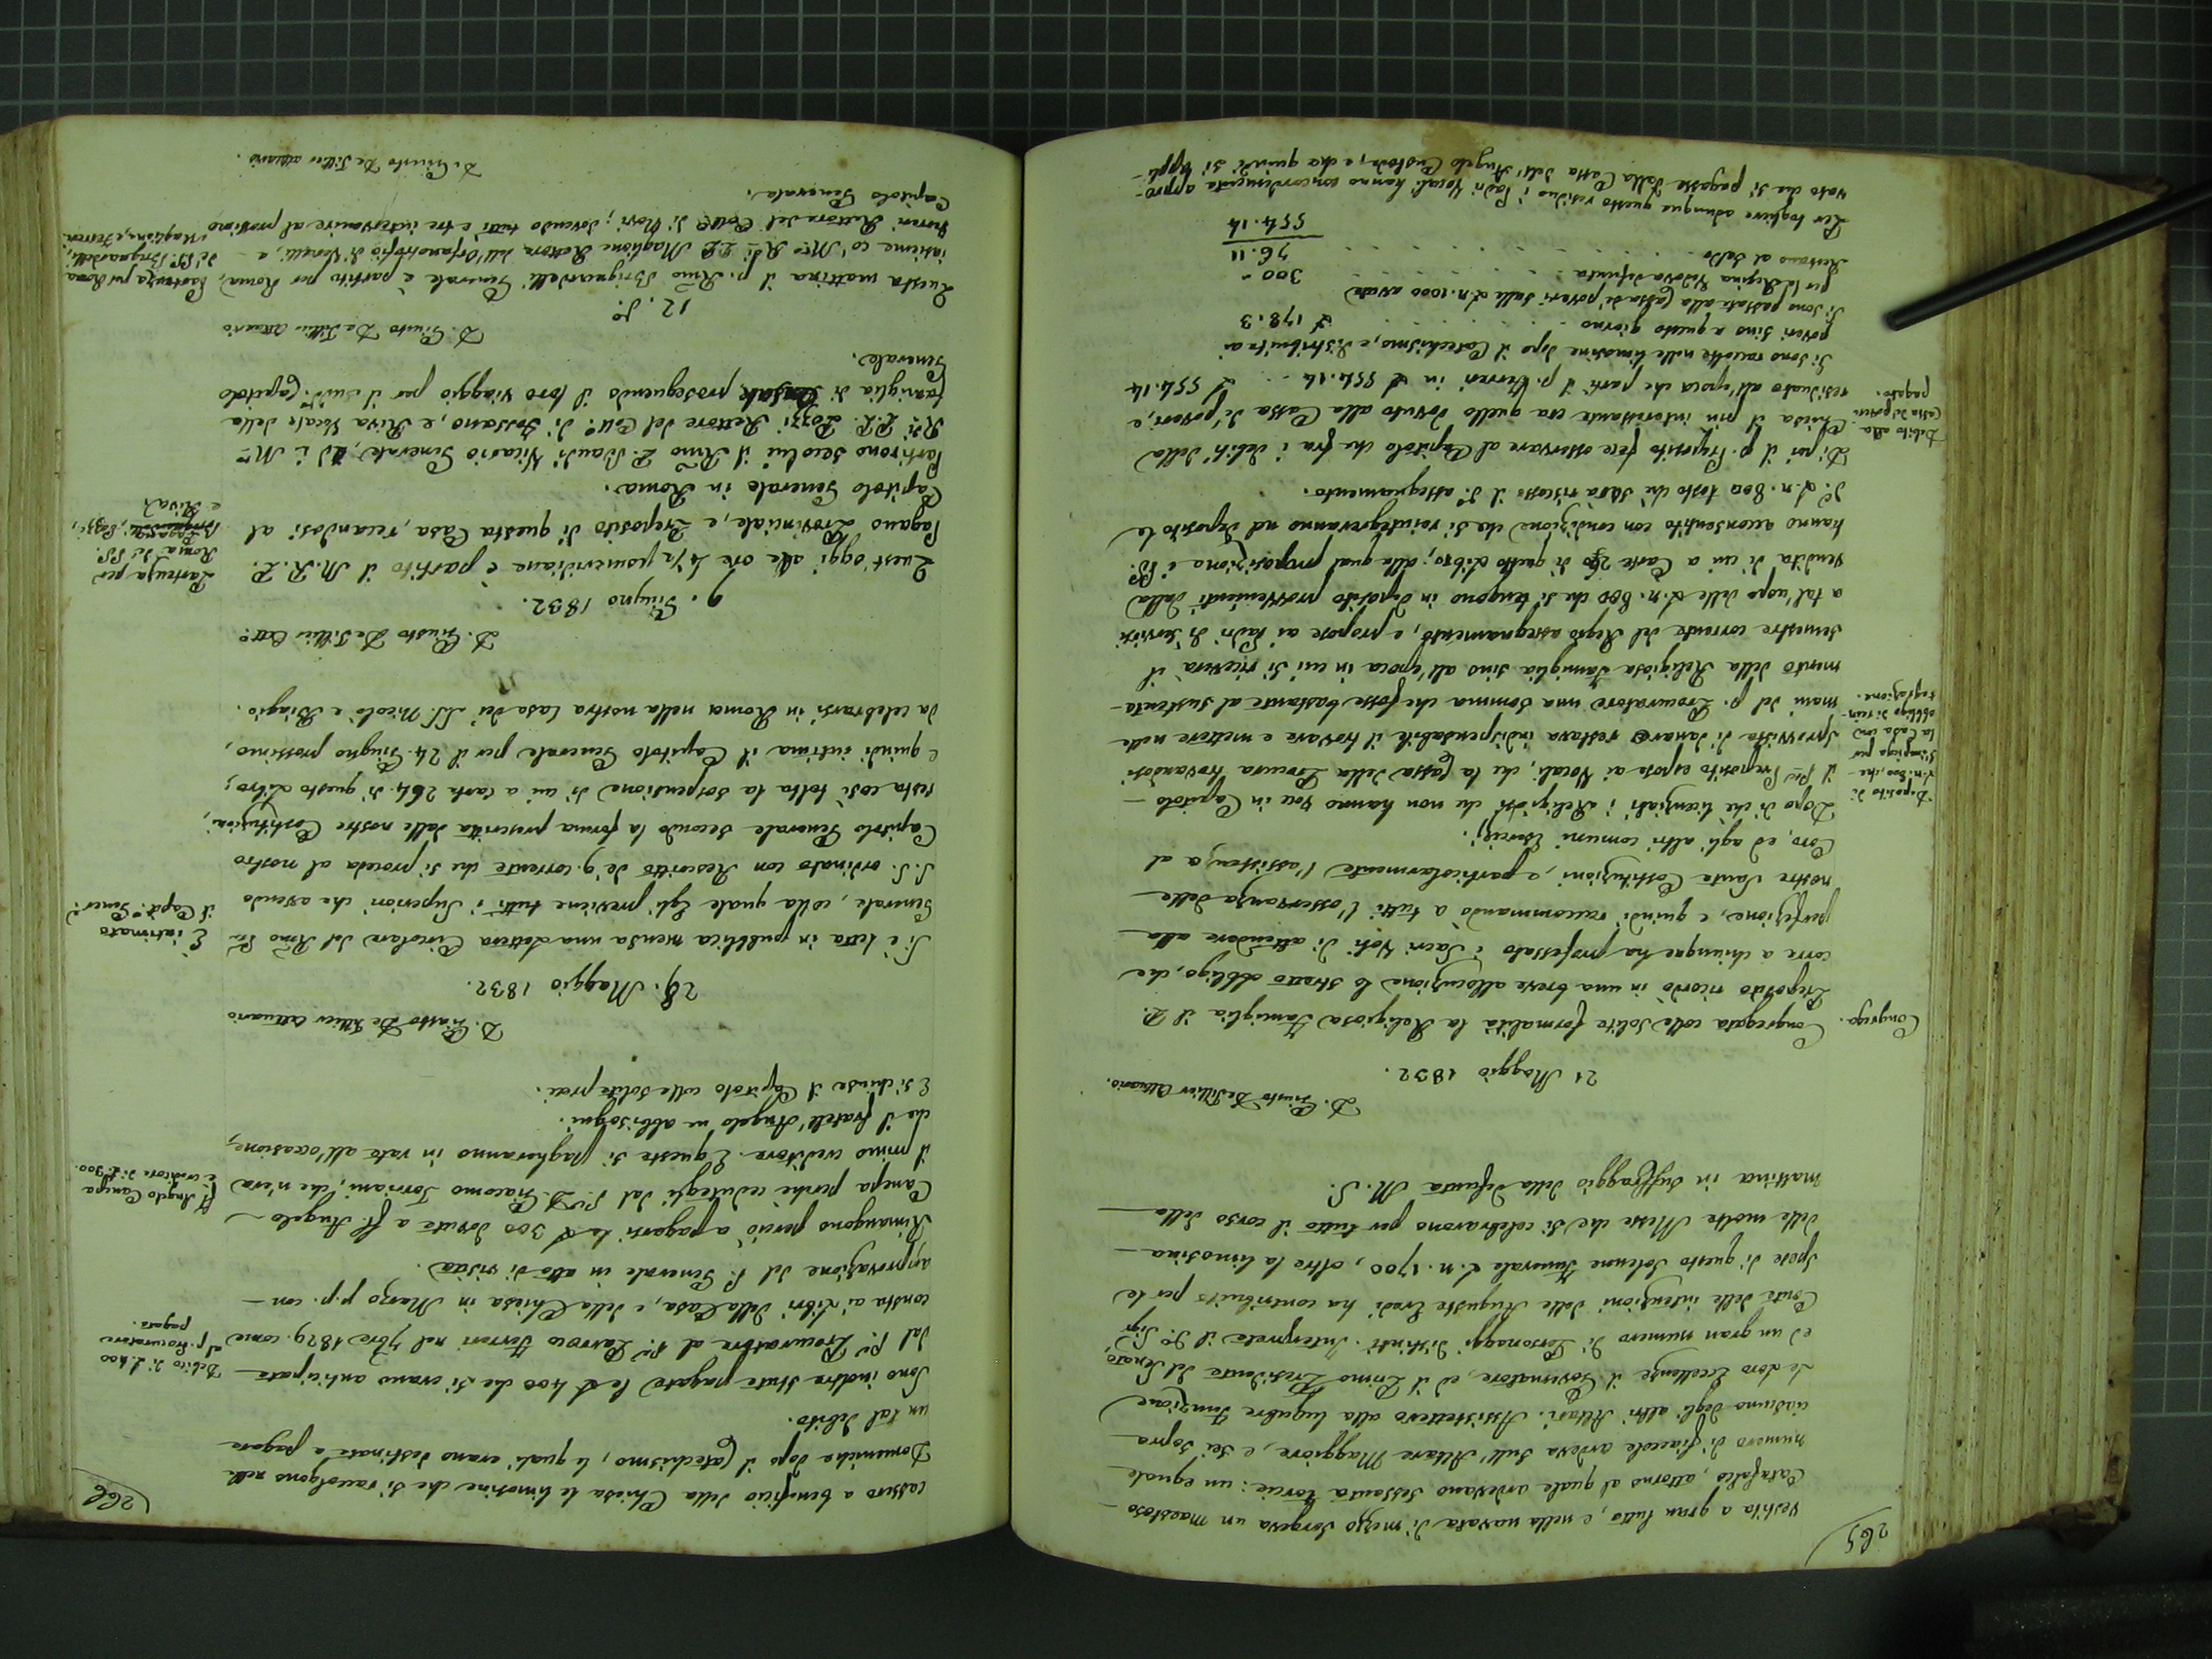 265
vestita a gran lutto, e nella navata di mezzo sorgeva un maestoso
Catafalco, attorno al quale ardevano sessanta torcie: un eguale
numero di fiaccole ardeva sull'Altare Maggiore, e sei sopra
ciaduno degli altri Altari. Assistettero alla lugubre Funzione
le Loro Eccellenze il Governatore, ed il Primo Presidente del Senato,
ed un gran numero di Personaggi distinti. Interprete il Sigr.
Conte delle intenzioni delle Auguste Eredi ha contribuito per le
spese di questo solenne Funerale L. n. 1700, oltre la limosina
delle molte Messe che si celebrarono per tutto il corso della
mattina in suffraggio della defunta M. S.
D. Giusto De Tillier Attuario.
21 Maggio 1832.
Congrega.
Congregata colle solite formalità la Religiosa Famiglia il P.
Preposito ricordò in una breve allocuzione lo stretto obbligo, che
corre a chiunque ha professato i Sacri Voti di attendere alla
perfezione, e quindi raccommandò a tutti l'osservanza delle
nostre Sante Costituzioni, e particolarmente l'assistenza al
Coro, ed agli altri comuni Esercizj.
Deposito di
L. n. 800, che
s'impiega per
la Casa con
obbligo di rein-
tegrazione.
Dopo di che licenziati i Religiosi che non hanno voce in Capitolo
il P. Preposito espose ai Vocali, che la Cassa della Procura trovandosi
sprovvista di danaro restava indispensabile il trovare e mettere nelle
mani del p. Procuratore una somma che fosse bastante al sustenta-
mento della Religiosa Famiglia sino all'epoca in cui si riceverà il
semestre corrente del Regio assegnamento, e propose ai Padri di servirsi
a tal'uopo delle L. n. 800 che si tengono in deposito provenienti dalla
vendita di cui a Carte 260 di questo Libro; alla qual proposizione i PP.
hanno acconsentito con condizione che si reintegreranno nel deposito le
d.e L. n. 800 tosto che sarà riscosso il d.o assegnamento.
Debito alla
Cassa dei poveri
pagato.
Di poi il p. Preposito fece osservare al Capitolo che fra i debiti della
Chiesa il più interessante era quello dovuto alla Cassa di poveri, e
residuato all'epoca che partì il p. Ferreri in L 554.14 . . . L 554.14
Si sono raccolte nelle limosine dopo il Catechismo, e distribuite ai
poveri sino a questo giorno . . . . L 178.3
Si sono passate alla Cassa de' poveri dalle L. n. 1000 avute
per la Regina Vedova defunta . . . . 300 -
Restano al saldo . . . . 76.11
554.14
Per togliere adunque questo residuo i Padri Vocali hanno concordemente appro-
vato che si pagasse dalla Cassa dell'Angelo Custode, e che quindi si
266
cassero a beneficio della Chiesa le limosine che si raccolgono nelle
Domeniche dopo il Catechismo, le quali erano destinate a pagare
un tal debito.
Debito di L 400
al p. Procuratore
pagato.
Sono inoltre state pagate le L 400 che si erano anticipate
dal P. Procuratore al P. Parroco Ferreri nel 7bre 1829. come
consta ai Libri della Casa, e della Chiesa in Marzo p. p. con
approvazione del P. Generale in atto di visita.
Fr. Angelo Canepa
è creditore di L. 300.
Rimangono perciò a pagarsi le L 300 dovute a fr. Angelo
Canepa perchè cedutegli dal P. D. Giacomo Torriani, che n'era
il primo creditore. E queste si pagheranno in rate all'occasione,
che il fratell'Angelo ne abbisogni.
E si chiuse il Capitolo colle solite preci.
D. Giusto De Tillier Attuario
28. Maggio 1832.
È intimato
il Capit.o Gener.e
Si è letta in pubblica mensa una Lettera Circolare del Rmo P.
Generale, colla quale Egli previene tutti i Superiori che avendo
S. S. ordinato con Rescritto de' 9. corrente che si proceda al nostro
Capitolo Generale secondo la forma prescritta dalle nostre Costituzioni,
resta così tolta la sospensione di cui a carte 264. di questo Libro;
e quindi intima il Capitolo Generale per il 24. Giugno prossimo,
da celebrarsi in Roma nella nostra Casa dei SS. Nicolò e Biagio.
D. Giusto De Tillier Att.o
9. Giugno 1832.
Partenza per
Roma dei PP.
Pagano, Pozzi,
e Riva
Quest'oggi alle ore 4 1/2 pomeridiane è partito il M. R. P.
Pagano Provinciale, e Preposito di questa Casa, recandosi al
Capitolo Generale in Roma.
Partirono seco lui il Rmo P. Baudi Vicario Generale, ed i M.
R.di P. P. Pozzi Rettore del Coll.o di Fossano, e Riva Vocale della
famiglia di Casale proseguendo il loro viaggio per il sud.o Capitolo
Generale.
D. Giusto De Tillier Attuario
12. d.o
Partenza per Roma
de' PP. Brignardelli,
Maglione, e Ferreri
Questa mattina il p. Rmo Brignardelli Generale è partito per Roma,
insieme co' M.to R.di PP. Maglione Rettore dell'Orfanotrofio di Vercelli, e
Ferreri Rettore del Coll.o di Novi; dovendo tutti e tre intervenire al prossimo
Capitolo Generale.
D. Giusto De Tillier attuario.